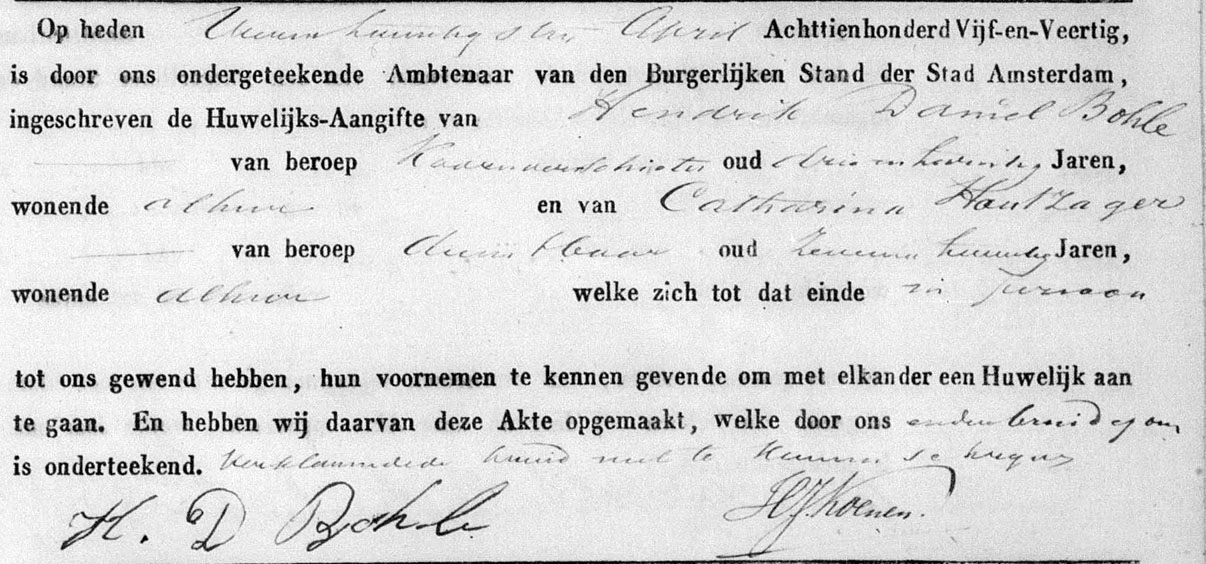 Op heden Vierentwintigsten April Achttienhonderd Vijf-en-Veertig,
is door ons ondergeteekende Ambtenaar van den Burgerlijken Stand der Stad Amsterdam,
ingeschreven de Huwelijks-Aangifte van Hendrik Daniel Bohle
van beroep oud drie en twintig Jaren,
wonende alhier en van Catharina Houtzager
van beroep oud zeven en twintig Jaren,
wonende alhier welke zich tot dat einde in persoon
tot ons gewend hebben, hun voornemen te kennen gevende om met elkander een Huwelijk aan
te gaan. En hebben wij daarvan deze Akte opgemaakt, welke door ons en den bruidegom
is onderteekend. verklarende de bruid niet te kunnen schrijven
H. D Bohle H J Koenen.